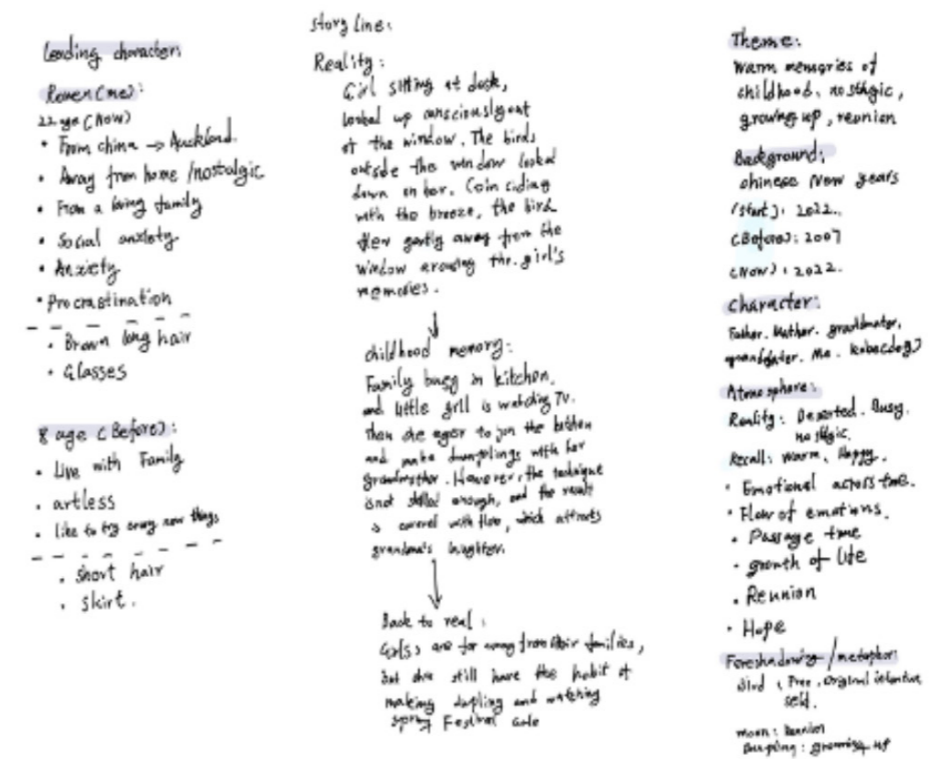 Leading character:
Rowen (me):
22 age (Now)
• From china → Auckland.
• Away from home / nostalgic
• From a loving family
• Social anxiety
• Anxiety
• Procrastination
• Brown long hair
• Glasses
8 age (Before):
• Live with Family
• artless
• like to try new things
• short hair
• skirt.
story line:
Reality:
Girl sitting at desk,
looked up out
of the window. The birds
outside the window looked
down on her. Coin ciding
with the breeze, the bird
flew gently away from the
window arousing the girl's
memories.
childhood memory:
Family busy in kitchen,
and little girl is watching TV.
Then she eager to join the kitchen
and make dumplings with her
grandmother. However, the technique
is not skilled enough, and the result
is covered with flour, which attracts
grandma's laughter.
Back to real:
are far away from their families,
but she still have the habit of
making and watching
Festival Gala
Theme:
Warm memories of
childhood, nosthgic,
growing up, reunion
Background:
chinese New years
(start): 2022.
(Before): 2007
(Now): 2022.
Character:
Father. Mother.
Me.
Atmosphere:
Reality: Deserted. Busy.
nosthgic.
Recall: Warm, Happy.
• Emotional across time.
• Flow of emotions.
• Passage time
• growth of life
• Reunion
• Hope
Foreshadowing / metaphor:
Bird: Free. Original
self.
moon: Reunion
Dumpling: growing up